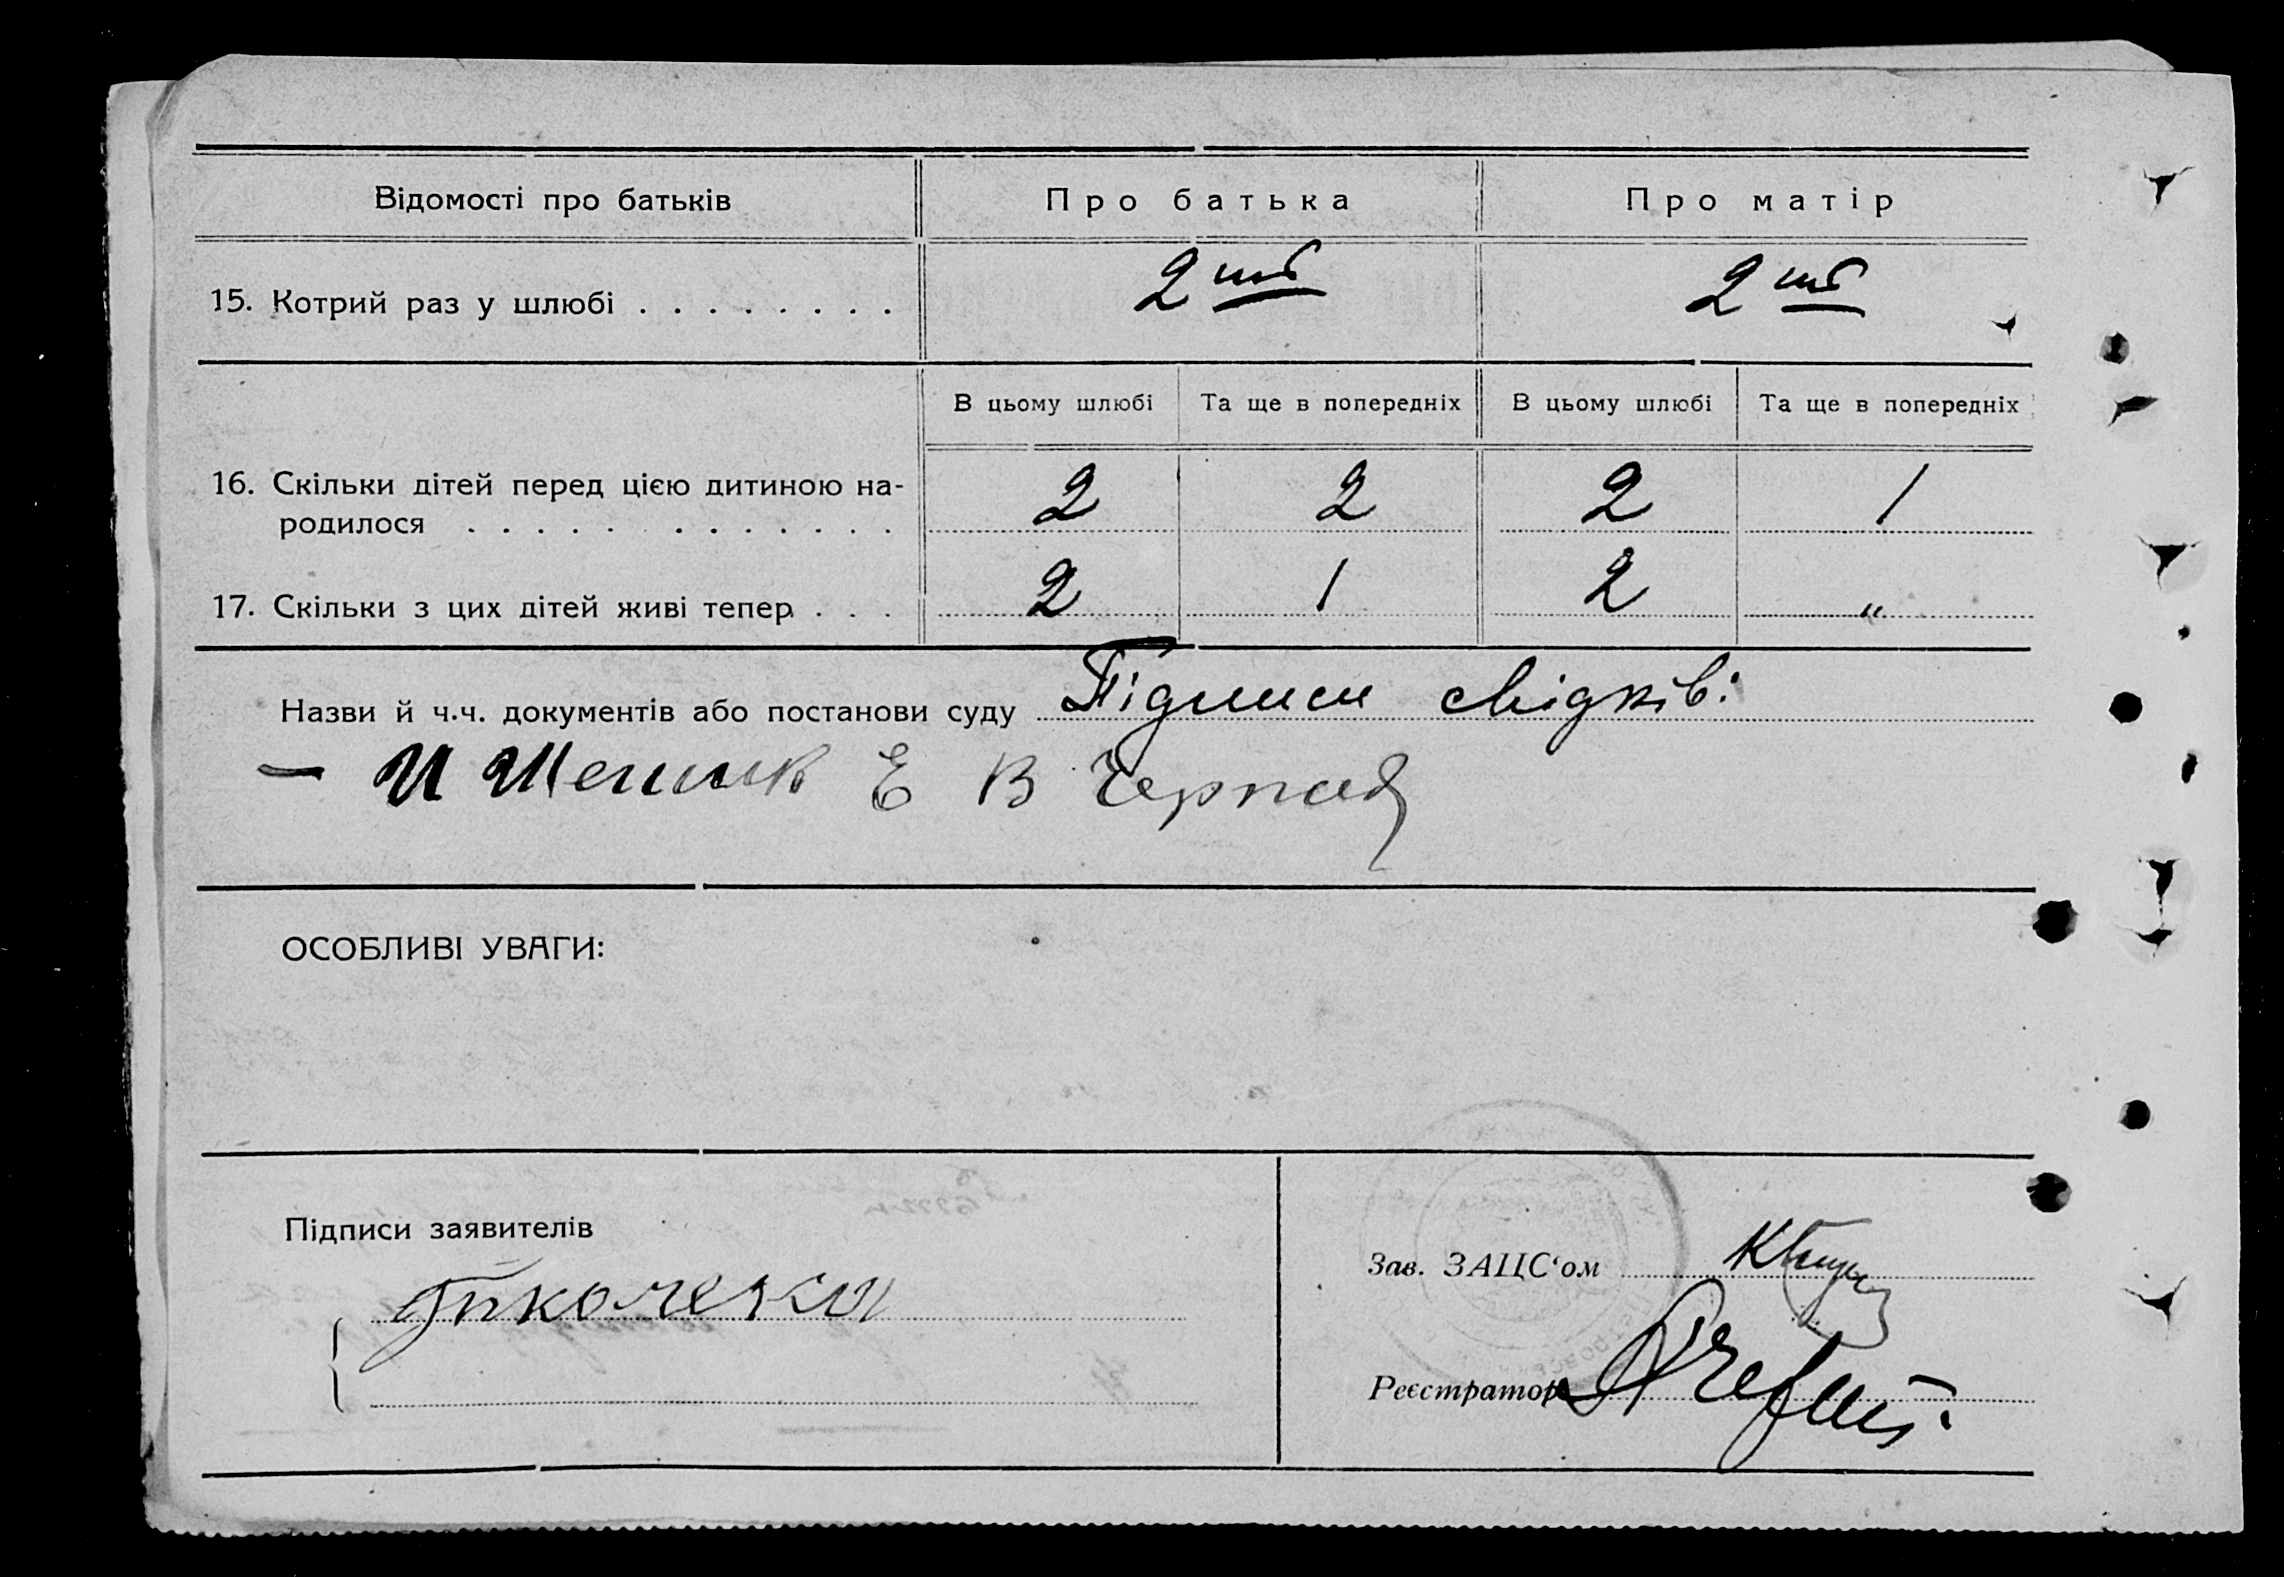 Відомості про батьків Про батька Про матір
15. Котрий раз у шлюбі . . . . . . . . 2 2
В цьому шлюбі Та ще в попередніх В цьому шлюбі Та ще в попередніх
16. Скільки дітей перед цією дитиною на-
родилося . . . . . . . . . . . . 2 2 2 1
17. Скільки з цих дітей живі тепер . . . 2 1 2 "
Назви й ч.ч. документів або постанови суду Підписи свідків:
— И Е В
ОСОБЛИВІ УВАГИ:
Підписи заявителів
Зав. ЗАЦС'ом
Реєстратор